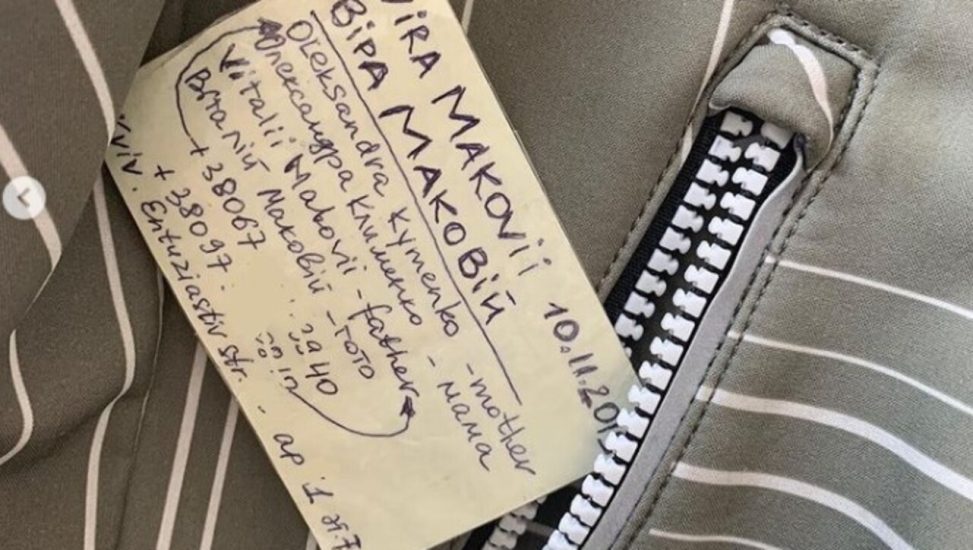 VIRA MAKOVII
ВІРА МАКОВІЙ
10.11.20
Oleksandra Kymenko - mother
Олександра Клименко - мама
Vitalii Makovii - father
Віталій Маковій - тато
+38067 40
+38097
Entuziastiv str. - ap 1